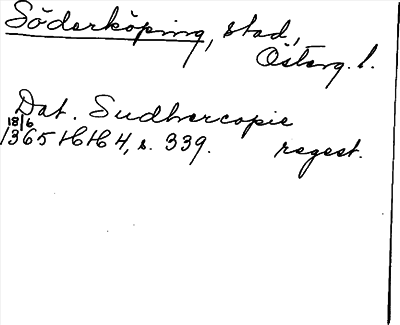 Söderköping, stad,
Österg. l.
Dat. Sudhercopie
18/6
1365 HH 4, s. 339. regest.